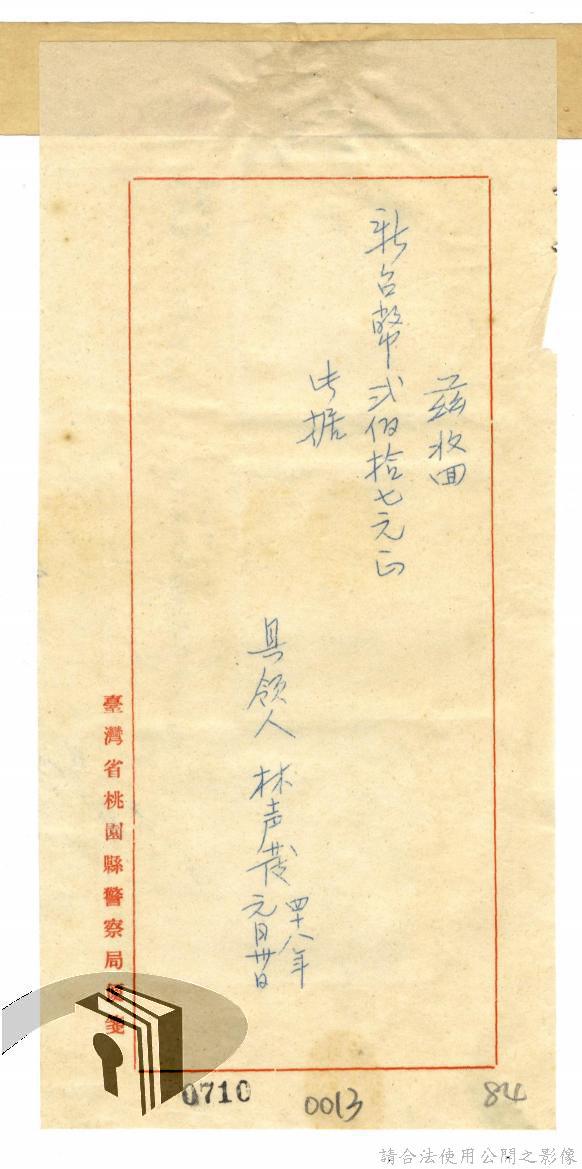 茲收回
新台幣弍佰拾七元正
此据
具領人 林声茂
四十八年
元月卅日
臺灣省桃園縣警察局便箋
0710
0013
84
請合法使用公開之影像